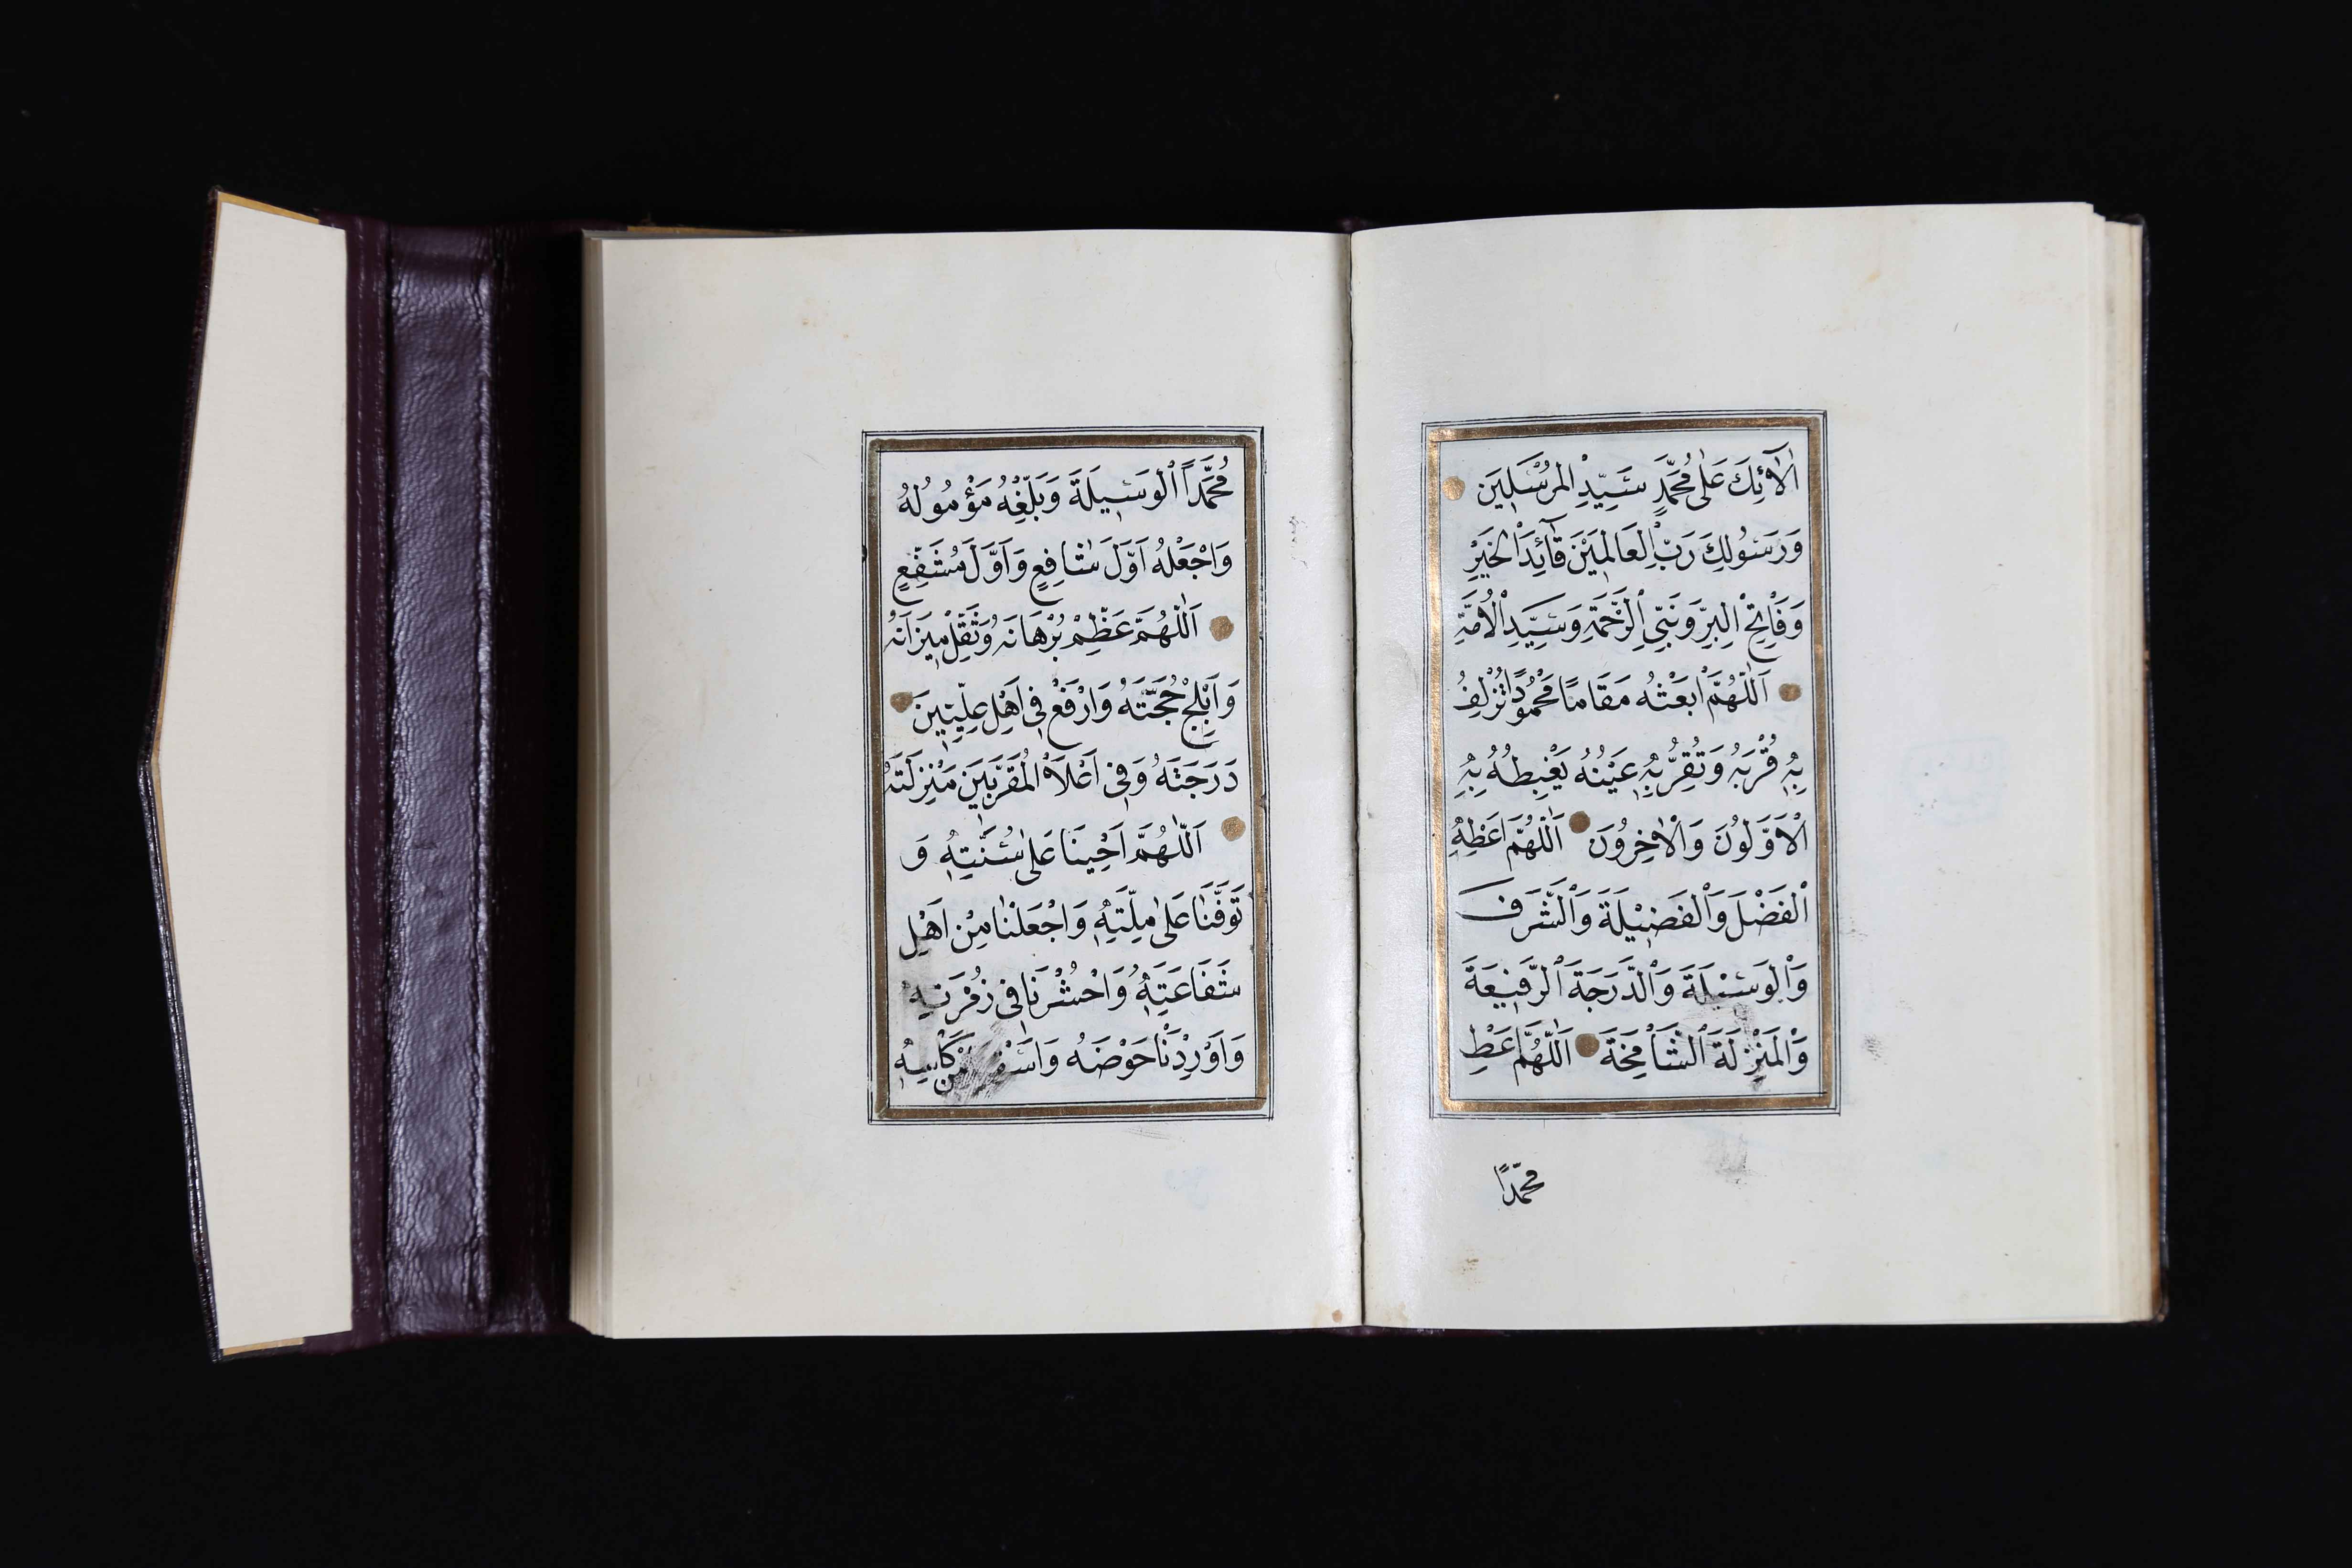 اٰلَآئِكَ عَلٰى مُحَمَّدٍ سَيِّدِ الْمُرْسَلِينَ
وَرَسُولِكَ رَبِّ الْعَالَمِيْنَ قَآئِدَ الْخَيْرِ
وَفَاتِحِ الْبِرِّ وَنَبِيِّ الرَّحْمَةِ وَسَيِّدِ الْاُمَّةِ
اَللّٰهُمَّ ابْعَثْهُ مَقَامًا مَحْمُودًا تُزْلِفُ
بِهٖ قُرْبَهُ وَتُقِرُّ بِهٖ عَيْنُهُ يَغْبِطُهُ بِهِ
الْاَوَّلُونَ وَالْاٰخِرُونَ اَللّٰهُمَّ اعْطِهِ
الْفَضْلَ وَالْفَضِيْلَةَ وَالشَّرَفَ
وَالْوَسِيْلَةَ وَالدَّرَجَةَ الرَّفِيْعَةَ
وَالْمَنْزِلَةَ الشَّامِخَةَ اَللّٰهُمَّ اعْطِ
مُحَمَّدًا
مُحَمَّدًا الْوَسِيلَةَ وَبَلِّغْهُ مَؤْمُولَهُ
وَاجْعَلْهُ اَوَّلَ شَافِعٍ وَاَوَّلَ مُشَفَّعٍ
اَللّٰهُمَّ عَظِّمْ بُرْهَانَهُ وَثَقِّلْ مِيزَانَهُ
وَاَبْلِجْ حُجَّتَهُ وَارْفَعْ فِى اَهْلِ عِلِّيِّينَ
دَرَجَتَهُ وَفِى اَعْلَا الْمُقَرَّبِينَ مَنْزِلَتَهُ
اَللّٰهُمَّ اَحْيِنَا عَلٰى سُنَّتِهٖ وَ
تَوَفَّنَا عَلٰى مِلَّتِهٖ وَاجْعَلْنَا مِنْ اَهْلِ
شَفَاعَتِهٖ وَاحْشُرْنَا فِى زُمْرَتِهِ
وَاَوْرِدْنَا حَوْضَهُ مِنْ كَاْسِهٖ